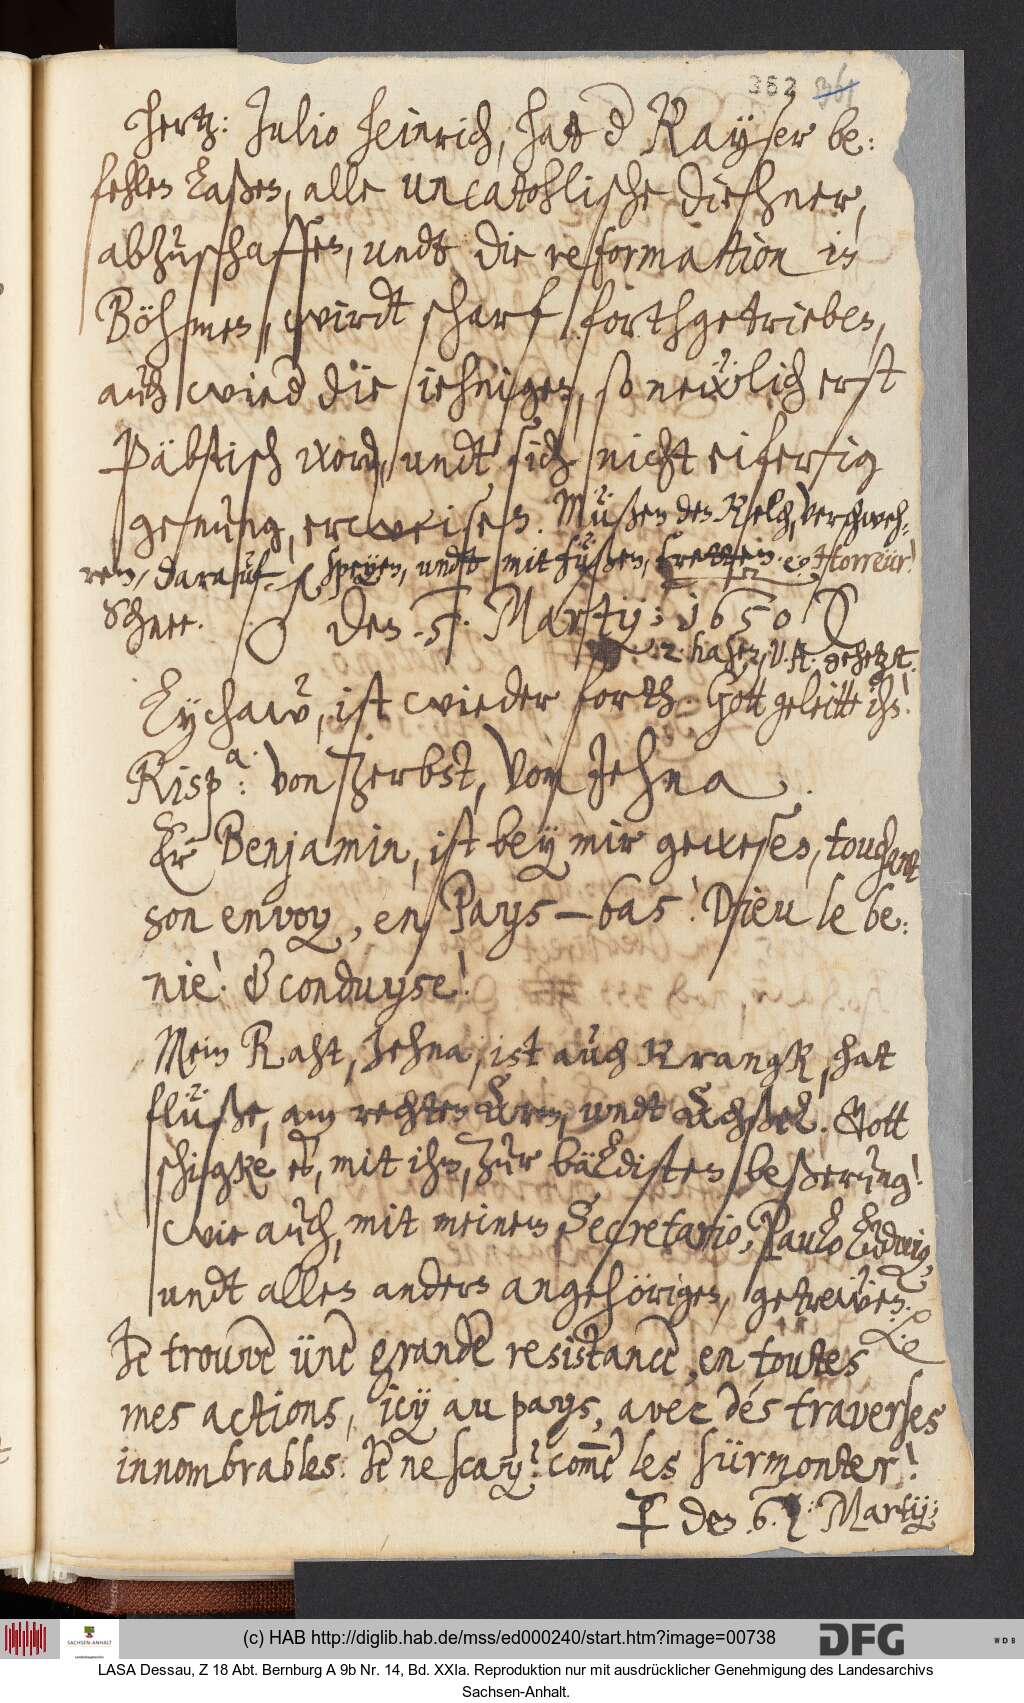 362 361
Hertz: Julio Heinrich, hatt d Kayser be:
fehlen laßen, alle uncatohlische diehner,
abzuschaffen, undt die reformation in
Böhmen, wirdt scharf forthgetrieben,
auch wied die jehnigen, so neẅlich erst
Päbstisch word, undt sich nicht eiferig
genung, erweisen. Müßen den Kelch, verschweh=
ren, darauf speyen, undt mit füßen, tretten. ô Horreur!
Schnee. den 5. Martij: 1650
2 hasen, v. A: gehetzt.
Eychaw, ist wieder forth. Gott geleitte ihn!
Risp.a: von Zerbst, von Jehna.
Er Benjamin, ist bey mir gewesen, touchant
son envoy, en Pays-bas! Dieu le be:
nie! & conduyse!
Mein Raht, Jehna, ist auch Krangk, hat
flüße, am rechten Arm, undt Achßel. Gott
schigke es, mit ihm, zur bäldisten beßerung!
wie auch, mit meinem Secretario, Paulo Ludwig,
undt allen anders angehörigen, getrewen.
Je trouve üne grande resistance, en toutes
mes actions, icy au pays, avec dés traverses
innombrables. Je ne scay? comē les sürmonter!
den 6. Martij:
(c) HAB http://diglib.hab.de/mss/ed000240/start.htm?image=00738
SACHSEN-ANHALT
DFG
WDB
LASA Dessau, Z 18 Abt. Bernburg A 9b Nr. 14, Bd. XXIa. Reproduktion nur mit ausdrücklicher Genehmigung des Landesarchivs
Sachsen-Anhalt.